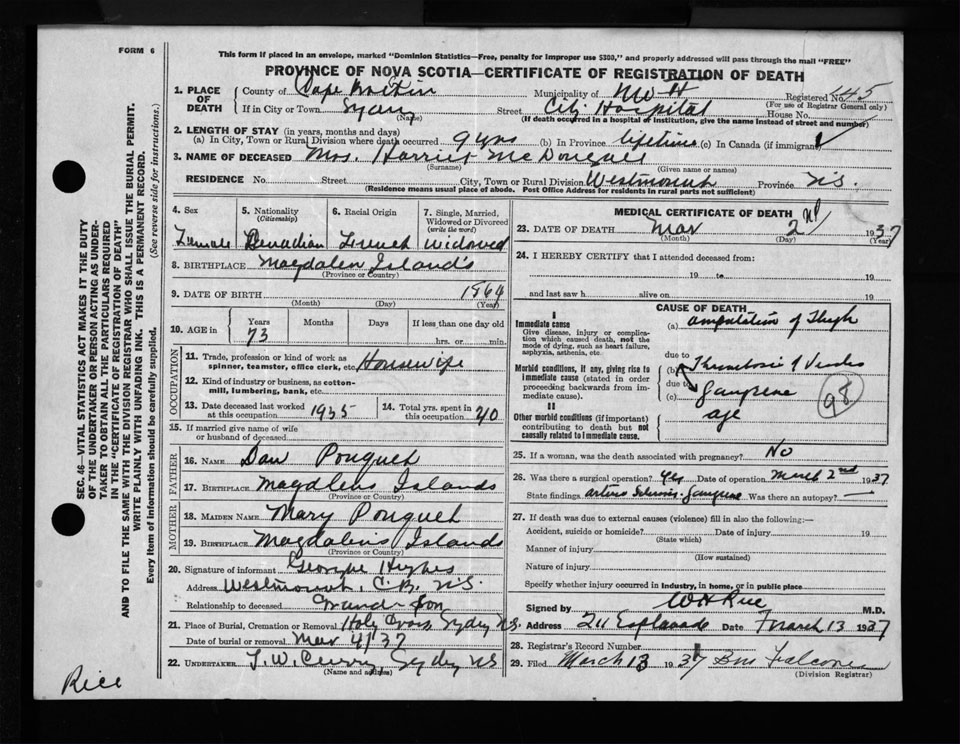 FORM 6
This form if placed in an envelope, marked "Dominion Statistics—Free, penalty for improper use $300," and properly addressed will pass through the mail "FREE"
PROVINCE OF NOVA SCOTIA—CERTIFICATE OF REGISTRATION OF DEATH
1. PLACE OF DEATH
County of Cape Breton Municipality of Registered No. 45
(For use of Registrar General only)
If in City or Town Sydney Street City Hospital House No.
(Name) (If death occurred in a hospital or institution, give the name instead of street and number)
2. LENGTH OF STAY (in years, months and days)
(a) In City, Town or Rural Division where death occurred 9 yrs (b) In Province lifetime (c) In Canada (if immigrant)
3. NAME OF DECEASED Mrs. Harriet McDougall
(Surname) (Given name or names)
RESIDENCE No. Street City, Town or Rural Division Westmount Province N.S.
(Residence means usual place of abode. Post Office Address for residents in rural parts not sufficient)
4. Sex
Female
5. Nationality
(Citizenship)
Canadian
6. Racial Origin
French
7. Single, Married, Widowed or Divorced
(write the word)
widowed
8. BIRTHPLACE Magdalen Island's
(Province or Country)
9. DATE OF BIRTH 1864
(Month) (Day) (Year)
10. AGE in
Years Months Days If less than one day old
73 hrs. or min.
OCCUPATION
11. Trade, profession or kind of work as
spinner, teamster, office clerk, etc. Housewife
12. Kind of industry or business, as cotton-
mill, lumbering, bank, etc.
13. Date deceased last worked
at this occupation 1935
14. Total yrs. spent in
this occupation 40
15. If married give name of wife
or husband of deceased
FATHER
16. NAME Dan
17. BIRTHPLACE Magdlens Islands
(Province or Country)
MOTHER
18. MAIDEN NAME Mary
19. BIRTHPLACE Magdalens Islands
(Province or Country)
20. Signature of informant George Hughes
Address Westmount, C.B. N.S.
Relationship to deceased Grand-Son
21. Place of Burial, Cremation or Removal Holy Cross, Sydney N.S.
Date of burial or removal Mar 4/37
22. UNDERTAKER T. W. Curry, Sydney NS
(Name and address)
MEDICAL CERTIFICATE OF DEATH
23. DATE OF DEATH Mar 2nd 1937
(Month) (Day) (Year)
24. I HEREBY CERTIFY that I attended deceased from:
19 to 19
and last saw h alive on 19
CAUSE OF DEATH
I
Immediate cause
Give disease, injury or complication which caused death, not the mode of dying, such as heart failure, asphyxia, asthenia, etc.
(a) amputation of Thigh
due to
Morbid conditions, if any, giving rise to immediate cause (stated in order proceeding backwards from immediate cause).
(b) Thrombosis of Vessels
due to
(c) Gangrene
98
II
Other morbid conditions (if important) contributing to death but not causally related to immediate cause.
age
25. If a woman, was the death associated with pregnancy? No
26. Was there a surgical operation? Yes Date of operation March 2nd 1937
State findings Gangrene Was there an autopsy? —
27. If death was due to external causes (violence) fill in also the following:—
Accident, suicide or homicide? Date of injury 19
(State which)
Manner of injury
(How sustained)
Nature of injury
Specify whether injury occurred in industry, in home, or in public place
Signed by W H Rice M.D.
Address 211 Esplanade Date March 13 1937
28. Registrar's Record Number
29. Filed March 13 1937 Falconer
(Division Registrar)
SEC. 46—VITAL STATISTICS ACT MAKES IT THE DUTY
OF THE UNDERTAKER OR PERSON ACTING AS UNDER-
TAKER TO OBTAIN ALL THE PARTICULARS REQUIRED
IN THE "CERTIFICATE OF REGISTRATION OF DEATH"
AND TO FILE THE SAME WITH THE DIVISION REGISTRAR WHO SHALL ISSUE THE BURIAL PERMIT.
WRITE PLAINLY WITH UNFADING INK. THIS IS A PERMANENT RECORD.
Every item of information should be carefully supplied. (See reverse side for instructions.)
Rice